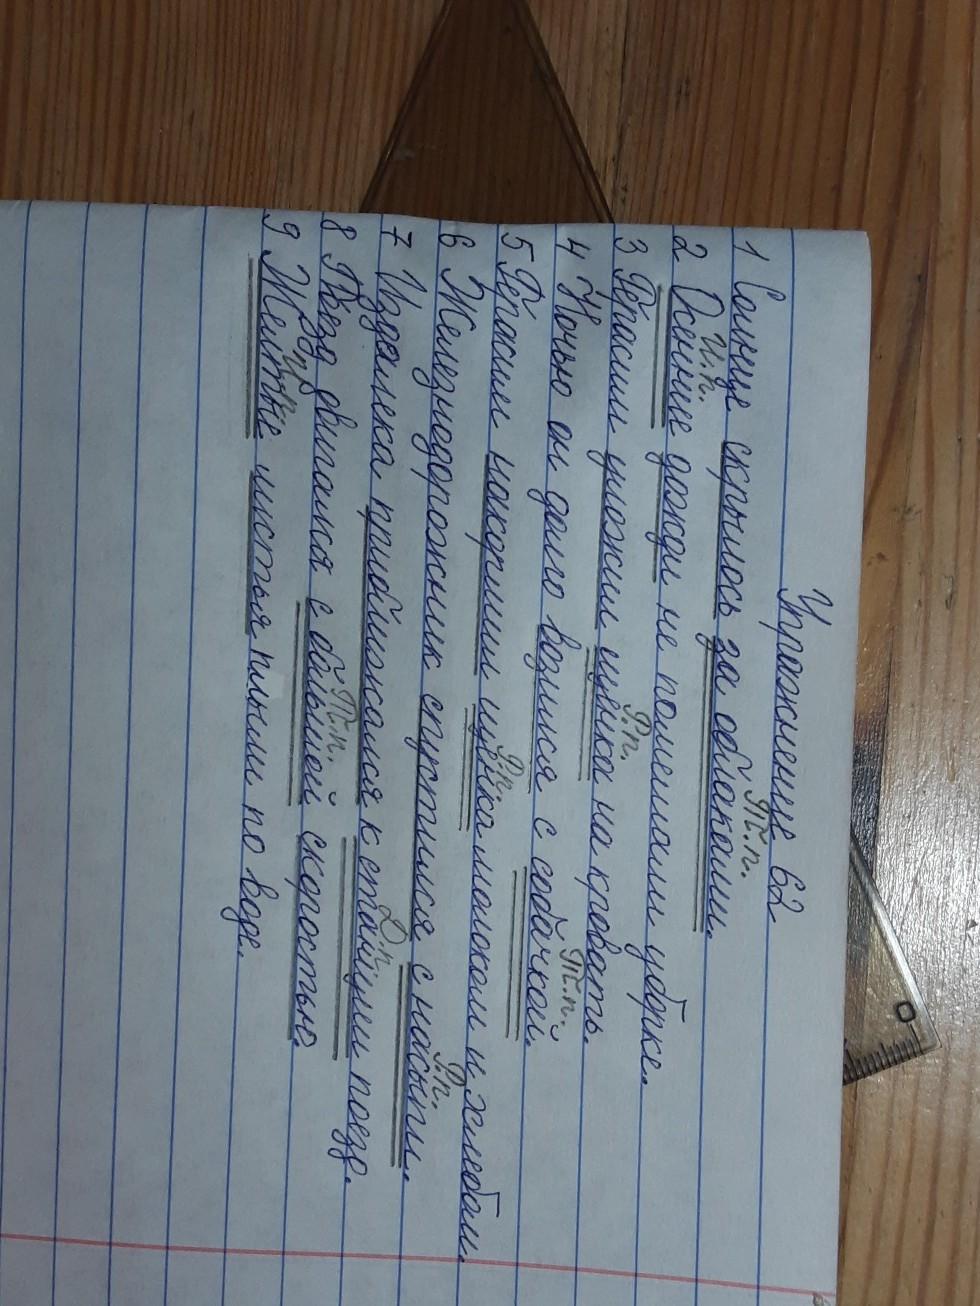 Упражнение 62
Т.п.
1 Солнце скрылось за облаками.
И.п.
2 Осенние дожди не помешали уборке.
Р.п.
3 Герасим уложил щенка на кровать.
Т.п.
4 Ночью он долго возился с собачкой.
Р.п.
5 Герасим накормил щенка молоком и хлебом.
Р.п.
6 Железнодорожник спустился с насыпи.
Д.п.
7 Издалека приближался к станции поезд.
Т.п.
8 Поезд двигался с большей скоростью.
И.п.
9 Желтые листья плыли по воде.
0